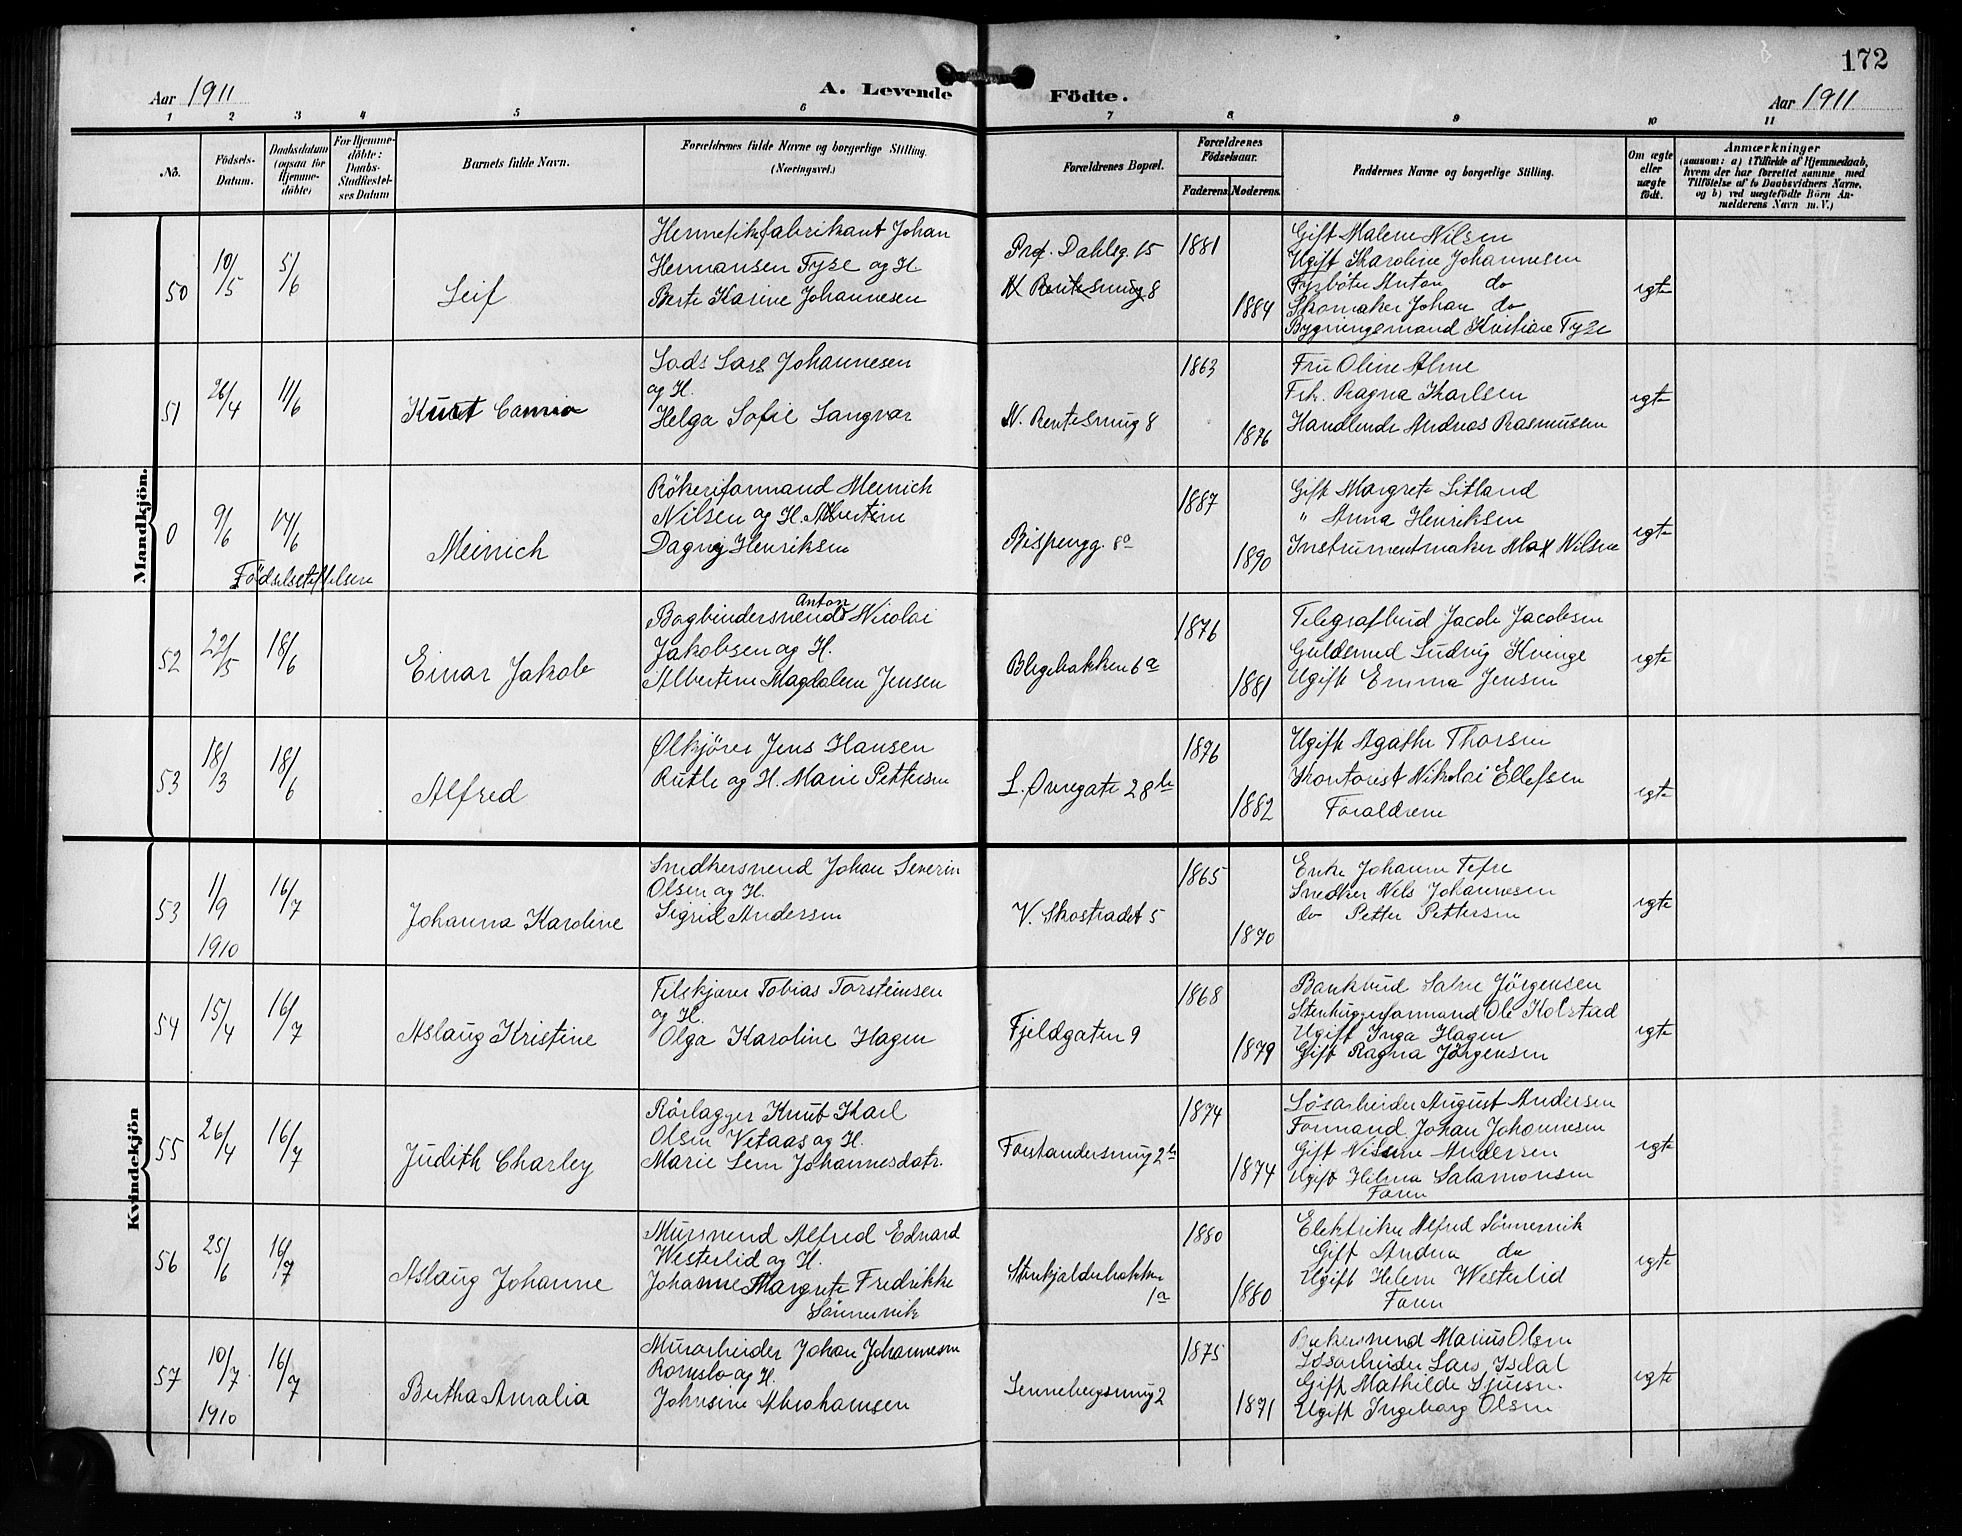 172
Aar 1911
A. Levende Födte.
Aar 1911
1 2 3 4 5 6 7 8 9 10 11
No.
Födsels-
Datum.
Daabsdatum
(ogsaa for
Hjemme-
döbte)
For Hjemme-
döbte:
Daabs-
Stadfæstel-
ses Datum
Barnets fulde Navn.
Forældrenes fulde Navne og borgerlige Stilling.
(Næringsvei.)
Forældrenes Bopæl.
Forældrenes
Födselsaar.
Faderens. Moderens.
Faddernes Navne og borgerlige Stilling.
Om ægte
eller
uægte
födt.
Anmærkninger
(saasom: a) i Tilfælde af Hjemmedaab,
hvem der har forrettet samme med
Tilföielse af to Daabsvidners Navne,
og b) ved uægtefödte Börn An-
melderens Navn m. V.)
Mandkjön.
50
10/5
5/6
Leif
Hermetikfabrikant Johan
Hermansen Tyse og H.
Berte Karine Johannesen
Prof. Dahlsg. 15
N Rentesmug 8
1881
1884
Gift Malene Nilsen
Ugift Karoline Johannesen
Fyrbøter Anton do
Skomaker Johan do
Bygningsmand Kristian Tyse
egte
51
26/4
11/6
Kurt
Lods Lars Johannesen
og H.
Helga Sofie Langvar
N. Rentesmug 8
1863
1876
Fru Oline Alme
Frk. Ragna Karlsen
Handlende Andreas Rasmussen
egte
0
9/6
17/6
Födselsstiftelsen
Meinich
Rökeriformand Meinich
Nilsen og H. Albertine
Dagny Henriksen
Bispengg. 8a
1887
1890
Gift Margrete Litland
" Anna Henriksen
Instrumentmaker Max Nilsen
egte
52
22/5
18/6
Einar Jakob
Anton
Bogbindersvend Nicolai
Jakobsen og H.
Albertine Magdalene Jensen
Blegebakken 6a
1876
1881
Telegrafbud Jacob Jacobsen
Guldsmed Ludvig Kvinge
Ugift Emma Jensen
egte
53
18/3
18/6
Alfred
Ølkjører Jens Hansen
Rutle og H. Marie Pettersen
L. Øvregate 28b
1876
1882
Ugift Agathe Thorsen
Kontorist Nikolai Ellefsen
Forældrene
egte
Kvindekjön
53
1/9
1910
16/7
Johanna Karoline
Snedkersvend Johan Severin
Olsen og H.
Sigrid Andersen
V. Skostrædet 5
1865
1870
Enke Johanne Tefre
Snedker Nels Johannesen
do Petter Pettersen
egte
54
15/4
16/7
Aslaug Kristine
Tobias Torsteinsen
og H.
Olga Karoline Hagen
Fjeldgaten 9
1868
1879
Bankbud Salve Jörgensen
Stenhuggerformand Ole Kolstad
Ugift Inga Hagen
Gift Ragna Jörgensen
egte
55
26/4
16/7
Judith Charley
Rörlægger Knut Karl
Olsen Vetaas og H.
Marie Sem Johannesdatr.
Forstandersmug 2b
1874
1874
Løsarbeider August Andersen
Formand Johan Johannesen
Gift Andersen
Ugift Hilma Salamonsen
Faren
egte
56
25/6
16/7
Aslaug Johanne
Mursvend Alfred Edvard
Westerlid og H.
Johanne Margrete Fredrikke
Sönnervik
Stenkjælderbakken
1a
1880
1880
Elektriker Alfred Sönnervik
Gift Andrea do
Ugift Helene Westerlid
Faren
egte
57
10/7
1910
16/7
Bertha Amalia
Murarbeider Johan Johannesen
Romslo og H.
Johnsine Abrahamsen
Sennebergsmug 2
1875
1871
Bakersvend Marius Olsen
Løsarbeider Lars Isdal
Gift Mathilde Sjursen
Ugift Ingeborg Olsen
egte